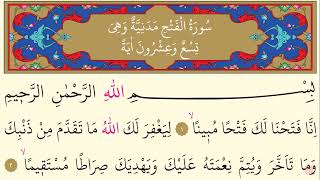 سُورَةُ الْفَتْحِ مَدَنِيَّةٌ وَهِيَ
تِسْعٌ وَعِشْرُونَ اٰيَةً
بِسْمِ اللهِ الرَّحْمٰنِ الرَّحِيمِ
اِنَّا فَتَحْنَا لَكَ فَتْحًا مُبِينًاۙ ١ لِيَغْفِرَ لَكَ اللهُ مَا تَقَدَّمَ مِنْ ذَنْبِكَ
وَمَا تَاَخَّرَ وَيُتِمَّ نِعْمَتَهُ عَلَيْكَ وَيَهْدِيَكَ صِرَاطًا مُسْتَقِيمًاۙ ٢